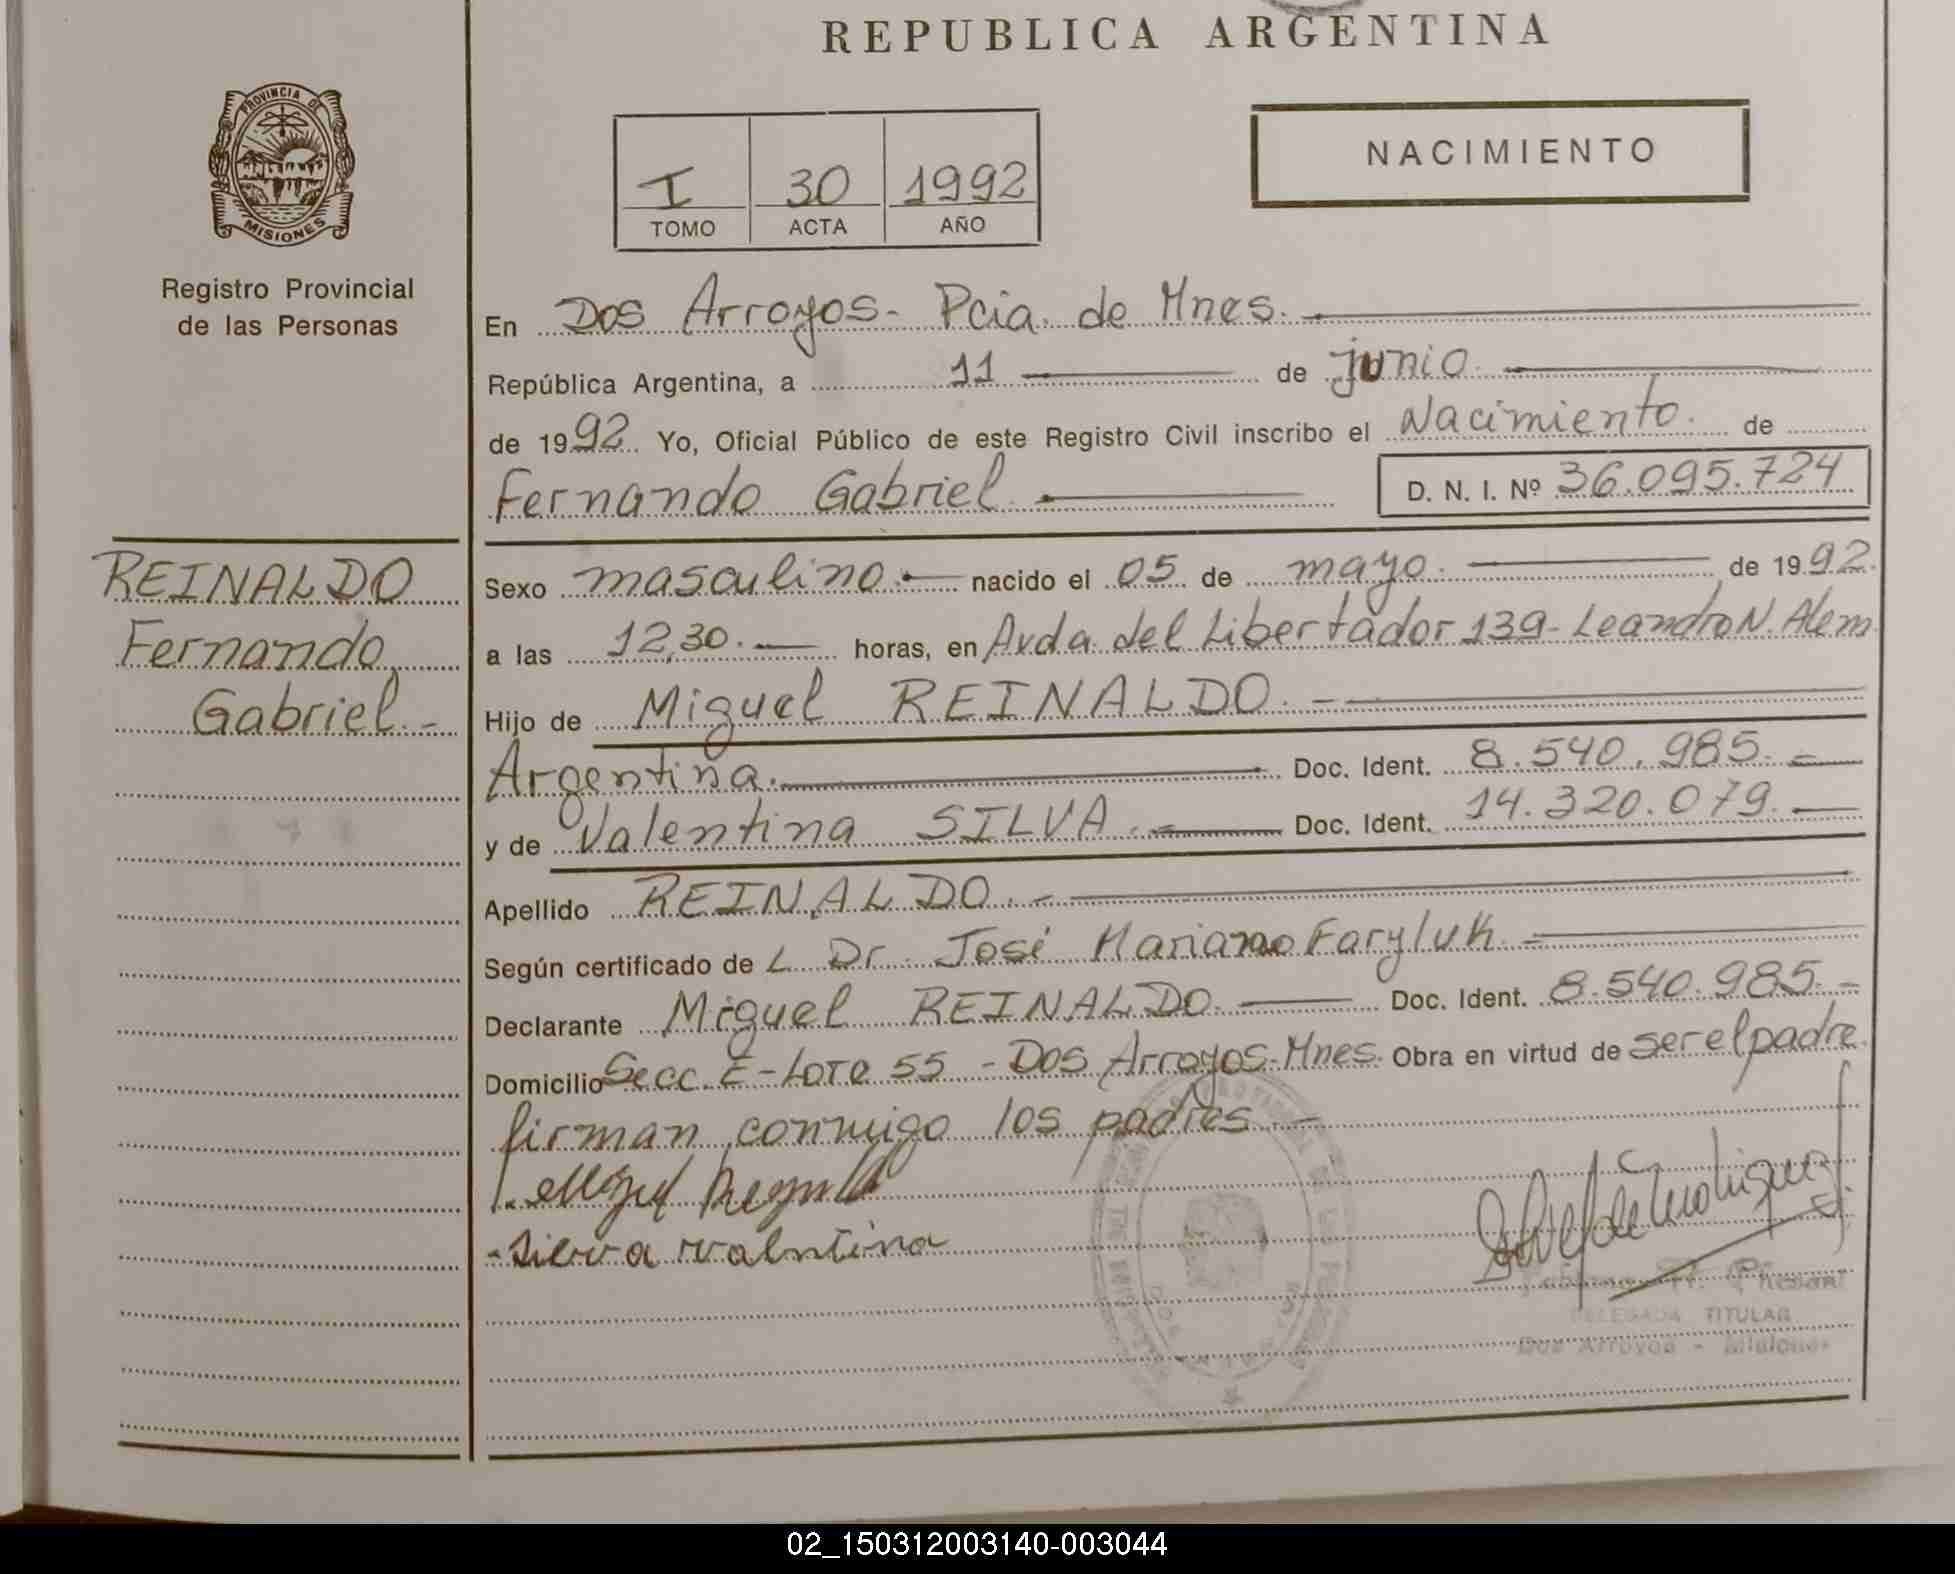 REPUBLICA ARGENTINA
PROVINCIA DE
MISIONES
Registro Provincial
de las Personas
I 30 1992
TOMO ACTA AÑO
NACIMIENTO
En Dos Arroyos - Pcia. de Mnes.
República Argentina, a 11 de junio.
de 1992. Yo, Oficial Público de este Registro Civil inscribo el Nacimiento. de
Fernando Gabriel. D. N. I. Nº 36.095.724
REINALDO
Fernando
Gabriel.-
Sexo masculino.- nacido el 05 de mayo. de 1992.
a las 12,30.- horas, en Avda. del Libertador 139 - Leandro N. Alem.
Hijo de Miguel REINALDO.-
Argentina. Doc. Ident. 8.540.985.-
y de Valentina SILVA.- Doc. Ident. 14.320.079.-
Apellido REINALDO.-
Según certificado de L Dr. José Mariano Faryluk.-
Declarante Miguel REINALDO. Doc. Ident. 8.540.985.-
Domicilio Secc. E - Lote 55 - Dos Arroyos - Mnes. Obra en virtud de ser el padre.
firman conmigo los padres.-
Silva Valntina
DELEGADA TITULAR
Dos Arroyos - Misiones
02_150312003140-003044